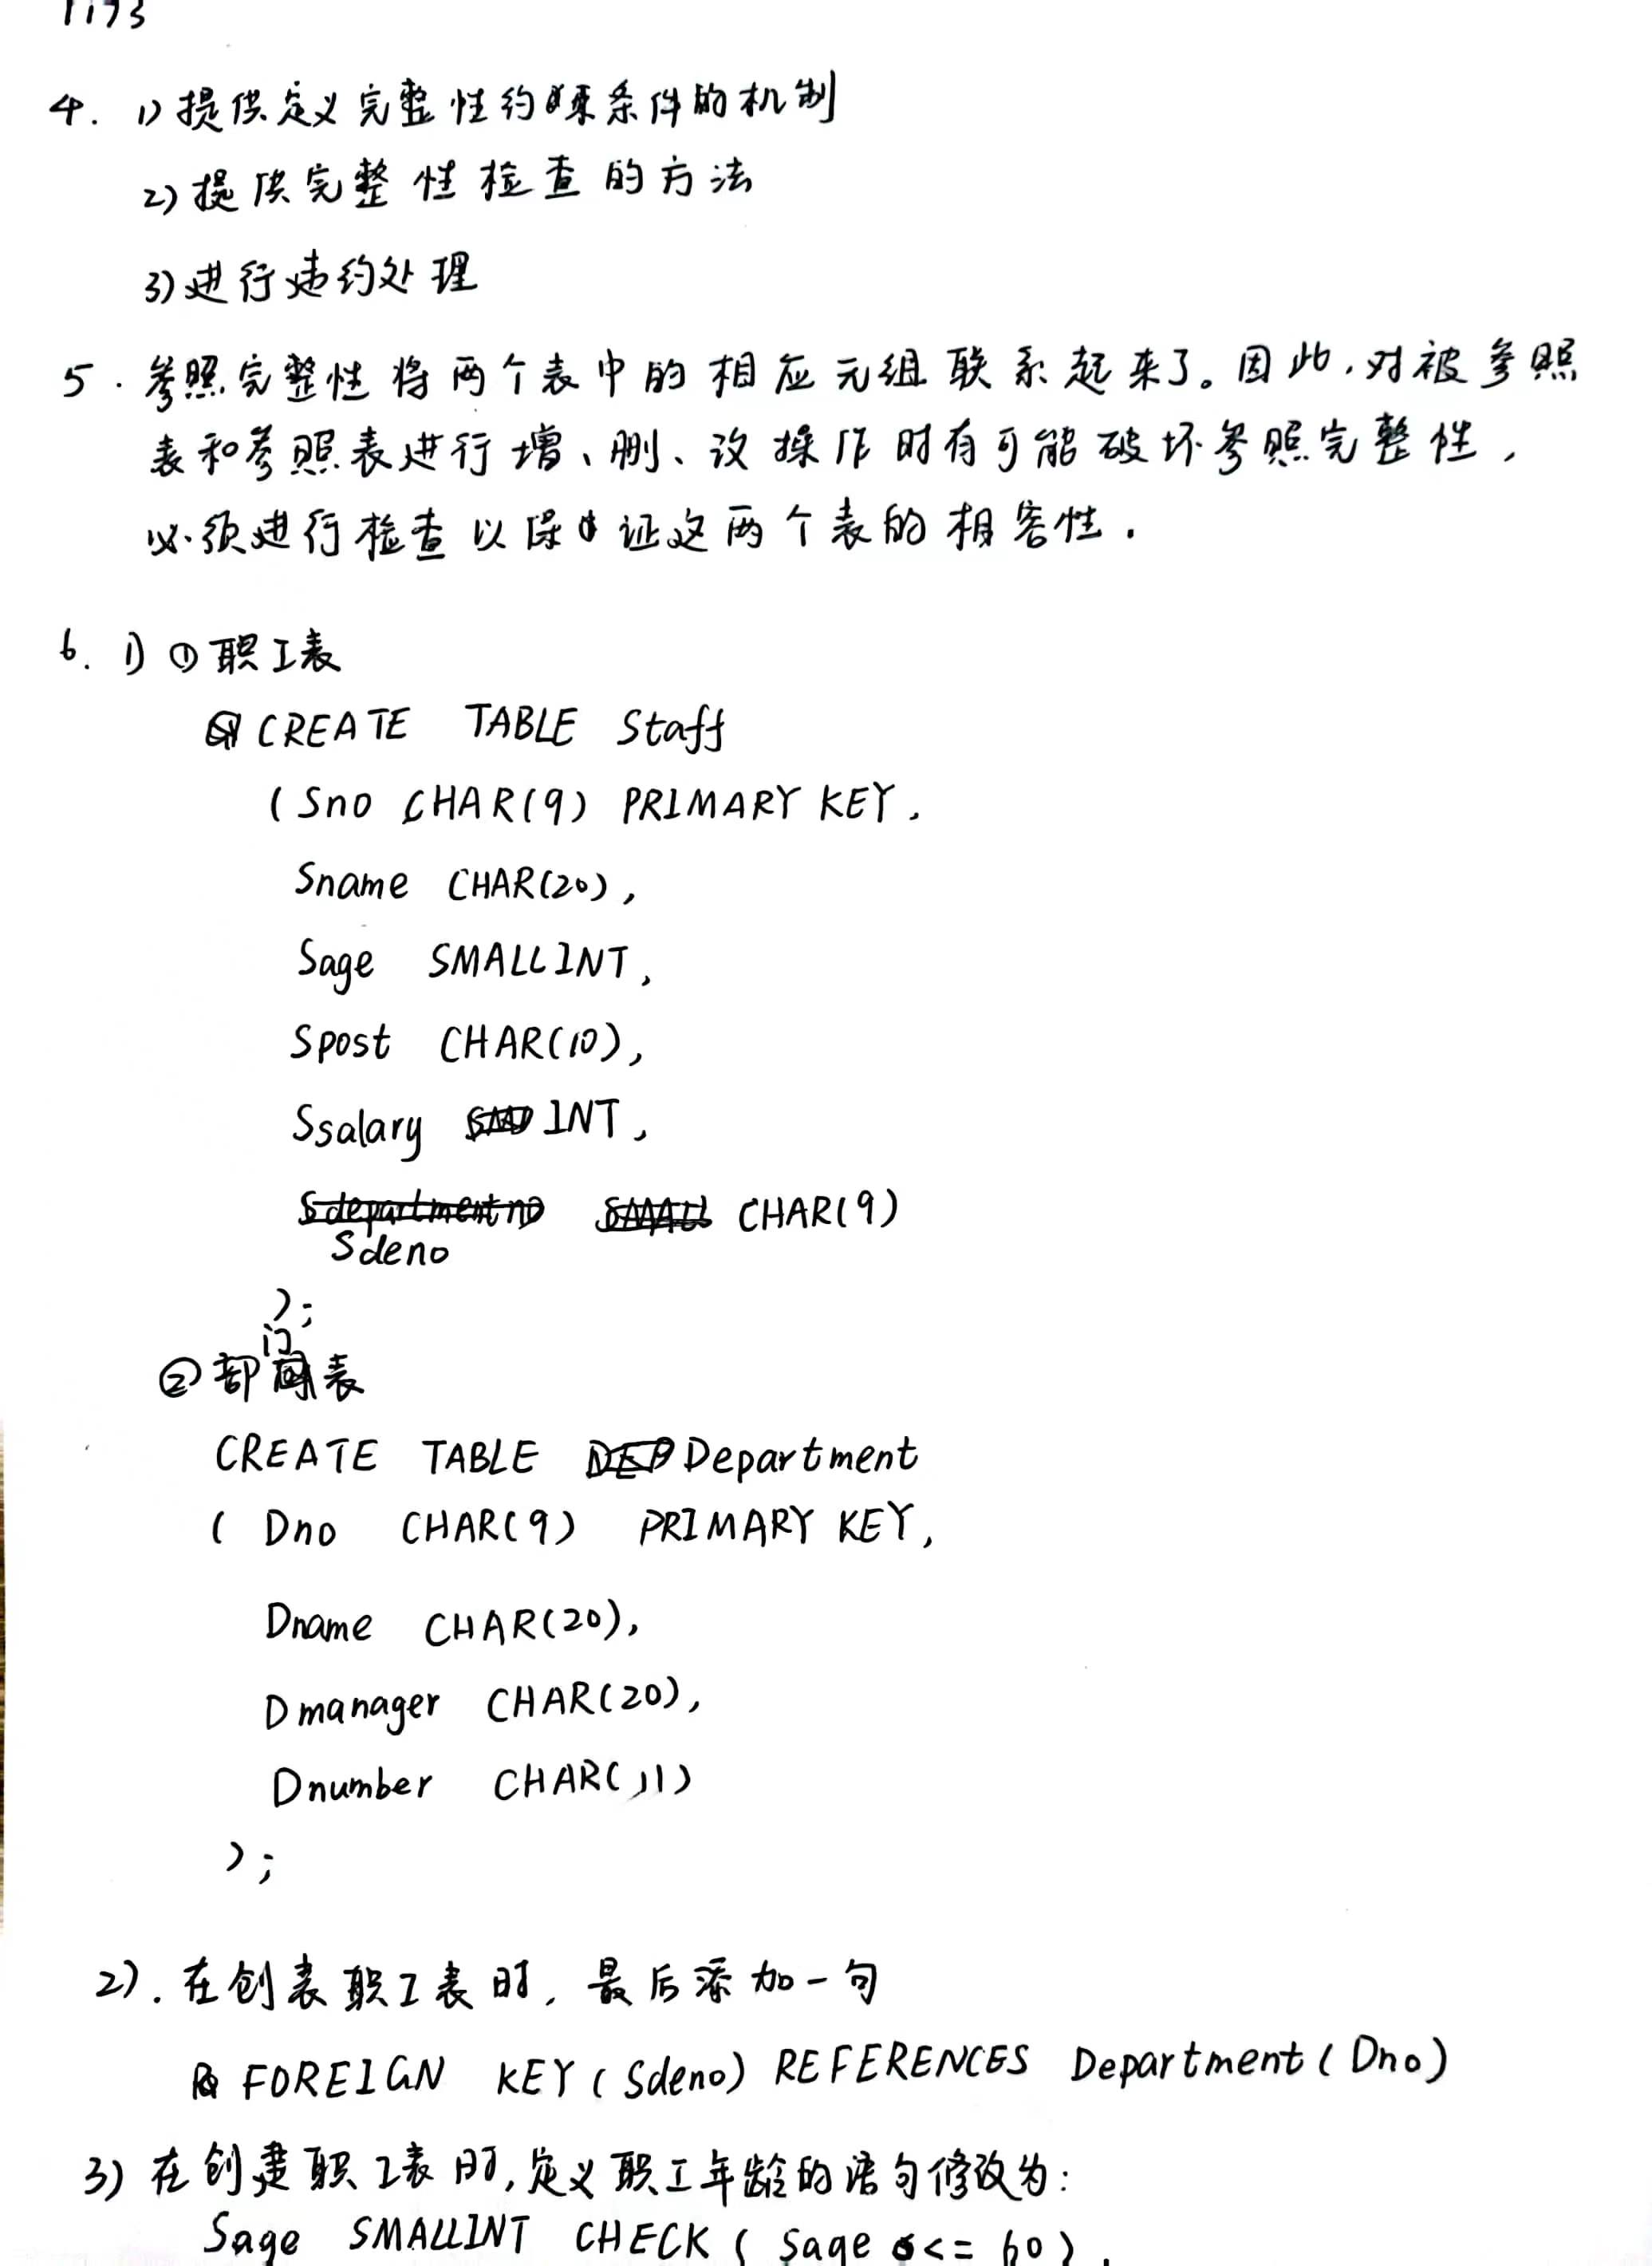 4. 1) 提供定义完整性约束条件的机制
2) 提供完整性检查的方法
3) 进行违约处理
5. 参照完整性将两个表中的相应元组联系起来了。因此,对被参照
表和参照表进行增、删、改操作时有可能破坏参照完整性,
必须进行检查以保证这两个表的相容性.
6. 1) ① 职工表
CREATE TABLE Staff
(Sno CHAR(9) PRIMARY KEY,
Sname CHAR(20),
Sage SMALLINT,
Spost CHAR(10),
Ssalary INT,
Sdeno CHAR(9)
);
② 部门表
CREATE TABLE Department
( Dno CHAR(9) PRIMARY KEY,
Dname CHAR(20),
Dmanager CHAR(20),
Dnumber CHAR(11)
);
2). 在创表职工表时, 最后添加一句
FOREIGN KEY(Sdeno) REFERENCES Department(Dno)
3) 在创建职工表时,定义职工年龄的语句修改为:
Sage SMALLINT CHECK ( Sage <= 60),